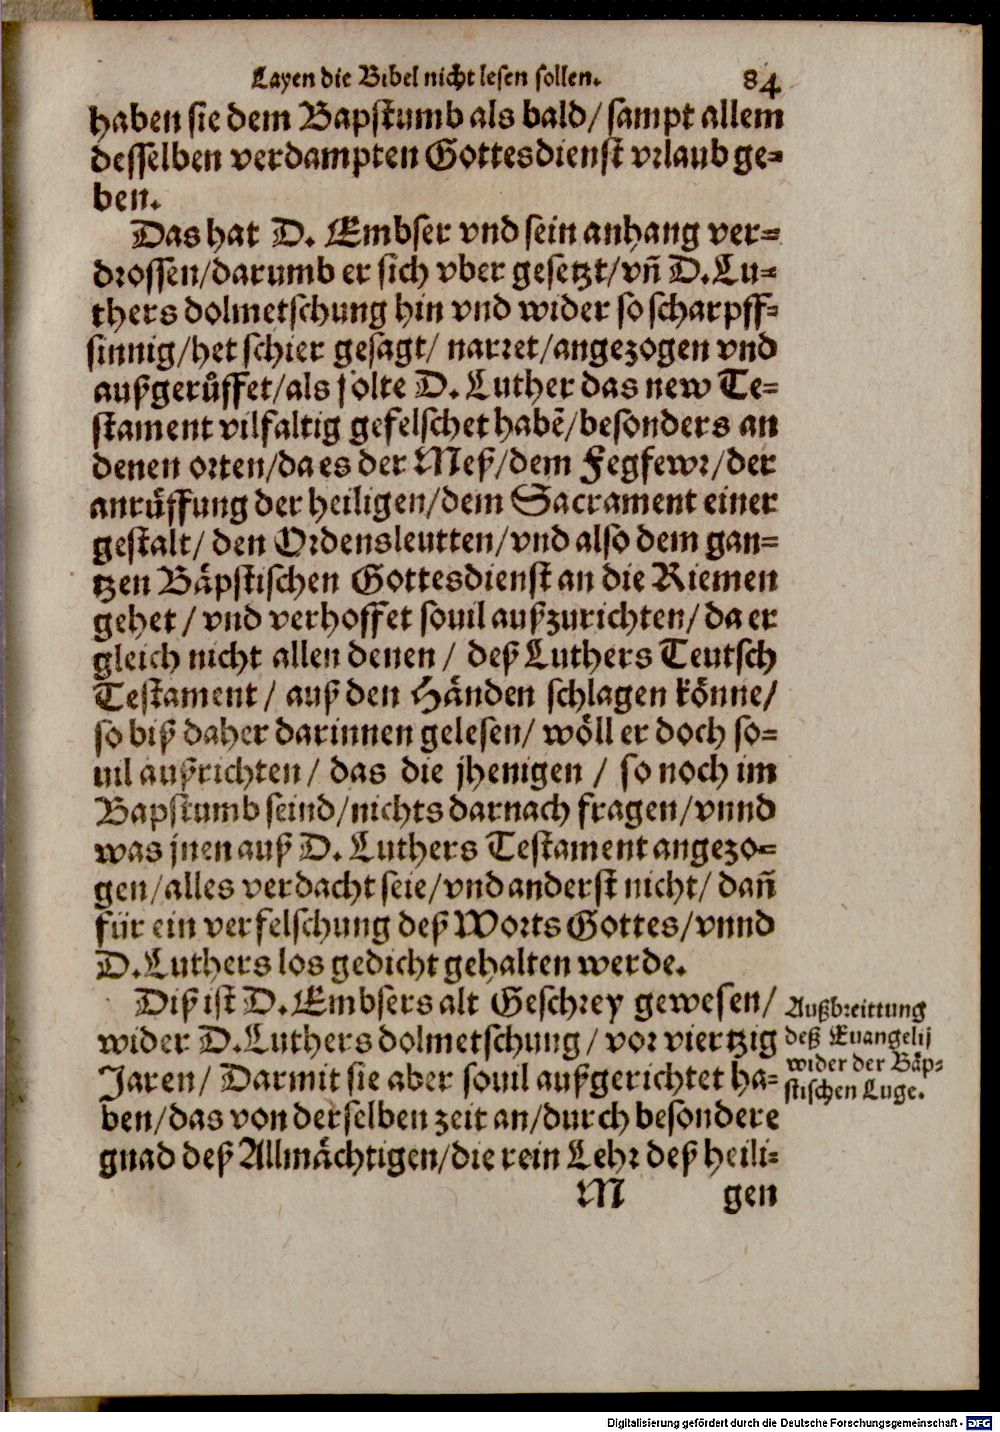 Layen die Bibel nicht lesen sollen. 84
haben sie dem Bapstumb als bald/ sampt allem
desselben verdampten Gottesdienst vrlaub ge-
ben.
Das hat D. Embser vnd sein anhang ver-
drossen/darumb er sich vber gesetzt/vñ D.Lu-
thers dolmetschung hin vnd wider so scharpff-
sinnig/het schier gesagt/ narret/angezogen vnd
außgerůffet/als solte D. Luther das new Te-
stament vilfaltig gefelschet habẽ/besonders an
denen orten/da es der Meß/dem Fegfewr/der
anrůffung der heiligen/dem Sacrament einer
gestalt/ den Ordensleutten/vnd also dem gan-
tzen Bäpstischen Gottesdienst an die Riemen
gehet/ vnd verhoffet souil außzurichten/ da er
gleich nicht allen denen/ deß Luthers Teutsch
Testament/ auß den Händen schlagen könne/
so biß daher darinnen gelesen/ wöll er doch so-
uil außrichten/ das die jhenigen/ so noch im
Bapstumb seind/nichts darnach fragen/vnnd
was jnen auß D. Luthers Testament angezo-
gen/alles verdacht seie/vnd anderst nicht/ dañ
für ein verfelschung deß Worts Gottes/vnnd
D.Luthers los gedicht gehalten werde.
Diß ist D.Embsers alt Geschrey gewesen/
wider D.Luthers dolmetschung/ vor viertzig
Jaren/ Darmit sie aber souil außgerichtet ha-
ben/das von derselben zeit an/durch besondere
gnad deß Allmächtigen/die rein Lehr deß heili-
M gen
Außbreittung
deß Euangelij
wider der Bäp-
stischen Luge.
Digitalisierung gefördert durch die Deutsche Forschungsgemeinschaft - DFG